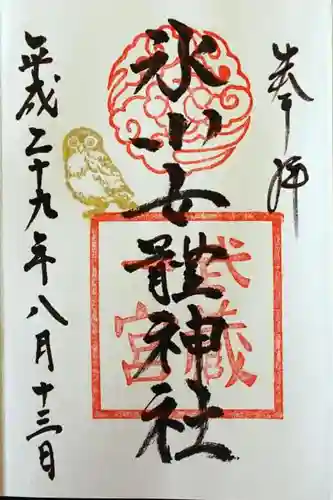 奉拝
氷川女體神社
武蔵
宮
平成二十九年八月十三日